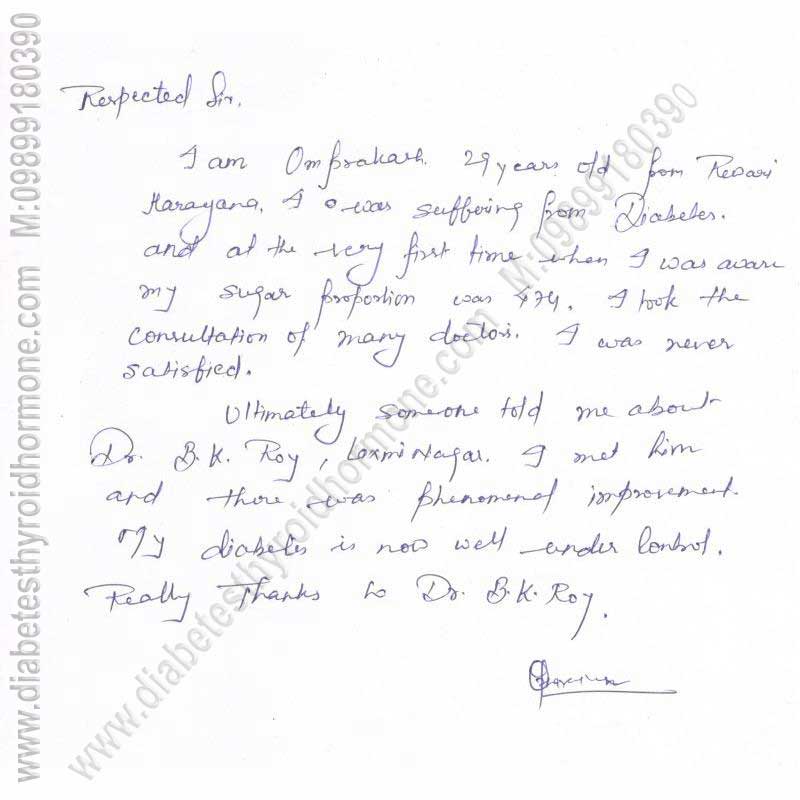 Respected Sir.
I am Omprakash. 29 years old from Rewari
Harayana. I was suffering from Diabetes.
and at the very first time when I was aware
my sugar proportion was 474. I took the
consultation of many doctors. I was never
satisfied.
Ultimately someone told me about
Dr. B.K. Roy, Laxmi Nagar. I met him
and there was phenomenal improvement.
My diabetes is now well under control.
Really Thanks to Dr. B.K. Roy.
www.diabetesthyroidhormone.com M:09899180390
www.diabetesthyroidhormone.com M:09899180390